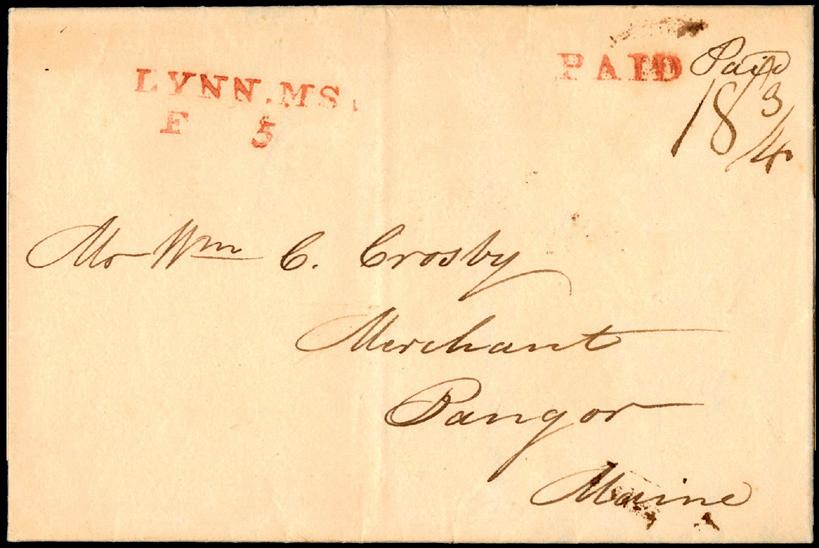 LYNN.MS.
F 5
PAID Paid
18 3/4
Mr Wm C. Crosby
Merchant
Bangor
Maine